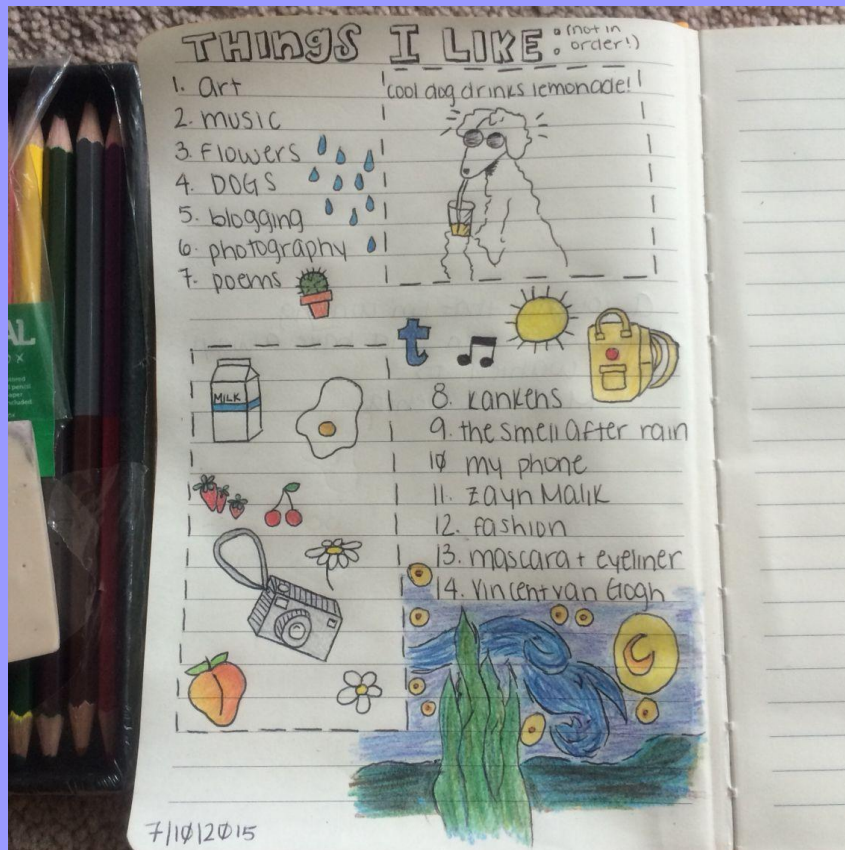 THINGS I LIKE : (not in order!)
1. art
2. music
3. Flowers
4. DOGS
5. blogging
6. photography
7. poems
cool dog drinks lemonade!
t
MILK
8. kankens
9. the smell after rain
10 my phone
11. Zayn Malik
12. fashion
13. mascara + eyeliner
14. Vincent van Gogh
7/10/2015
AL